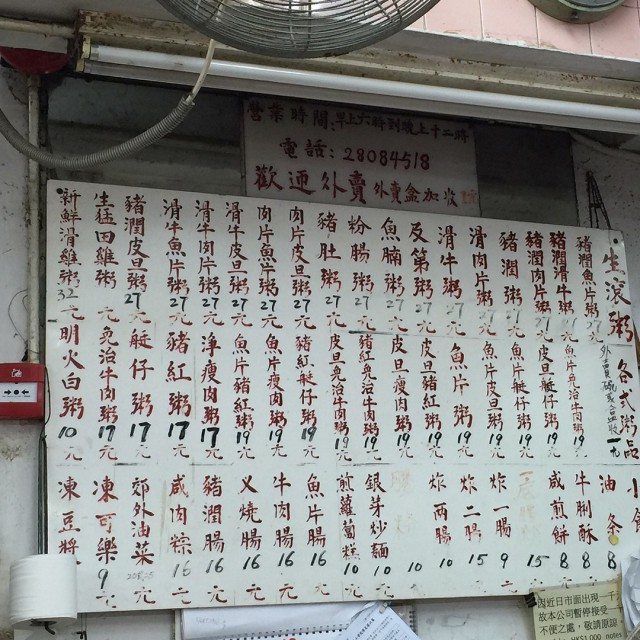 營業時間:早上六時到晚上十二時
電話:28084518
歡迎外賣 外賣盒加收
生滾粥
豬潤魚片粥 27元
豬潤滑牛粥 27元
豬潤肉片粥 27元
豬潤粥 27元
滑肉片粥 27元
滑牛粥 27元
及第粥 27元
魚腩粥 27元
粉腸粥 27元
豬肚粥 27元
肉片皮旦粥 27元
肉片魚片粥 27元
滑牛皮旦粥 27元
滑牛肉片粥 27元
滑牛魚片粥 27元
豬潤皮旦粥 27元
生猛田雞粥 元
新鮮滑雞粥 32元
各式粥品
魚片免治牛肉粥 19元
皮旦艇仔粥 19元
魚片艇仔粥 19元
魚片皮旦粥 19元
魚片粥 19元
皮旦豬紅粥 19元
皮旦瘦肉粥 19元
豬紅免治牛肉粥 19元
皮旦免治牛肉粥 19元
豬紅艇仔粥 19元
魚片瘦肉粥 19元
魚片豬紅粥 19元
淨瘦肉粥 17元
豬紅粥 17元
艇仔粥 17元
免治牛肉粥 17元
明火白粥 10元
油条 8元
牛脷酥 8元
咸煎餅 8元
15元
炸一腸 9元
炸二腸 15元
炸両腸 10元
10元
銀芽炒麵 10元
煎蘿蔔糕 10元
魚片腸 16元
牛肉腸 16元
叉燒腸 16元
豬潤腸 16元
咸肉粽 16元
郊外油菜 元
凍可樂 9元
凍豆漿
因近日市面出現一千
故本公司暫停接受
不便之處,敬請原諒
HK$1,000 notes